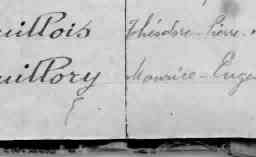 uillois Théodore-Pierre-
uillory Maurice-Euge